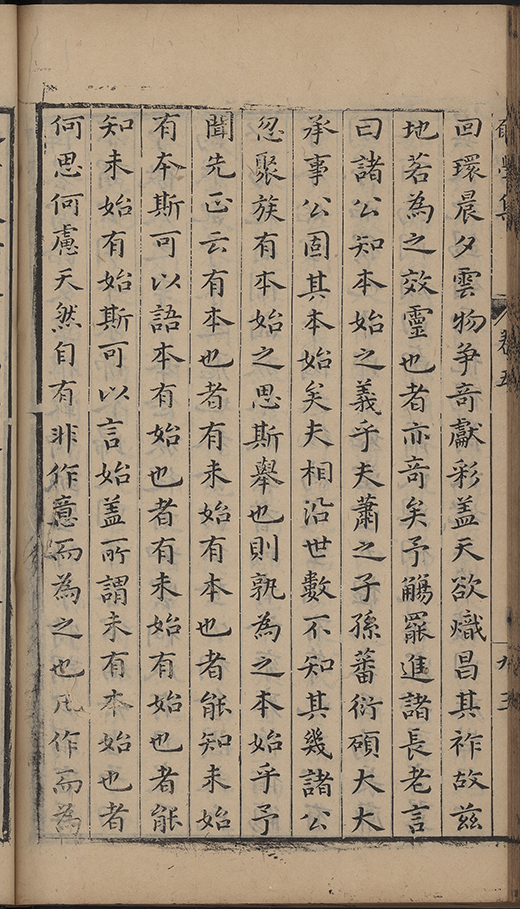 卷五
回環晨夕雲物争竒獻彩盖天欲熾昌其祚故兹
地若為之效靈也者亦竒矣予觴罷進諸長老言
曰諸公知本始之義乎夫蕭之子孫蕃衍碩大大
承事公固其本始矣夫相沿世數不知其幾諸公
忽聚族有本始之思斯舉也則孰為之本始乎予
聞先正云有本也者有未始有本也者能知未始
有本斯可以語本有始也者有未始有始也者能
知未始有始斯可以言始盖所謂未有本始也者
何思何慮天然自有非作意而為之也凡作而為